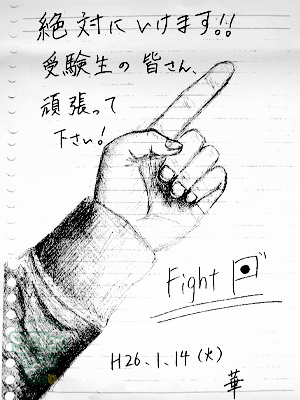 絶対にいけます!!
受験生の皆さん、
頑張って
下さい!
Fight
H26.1.14(火)
華